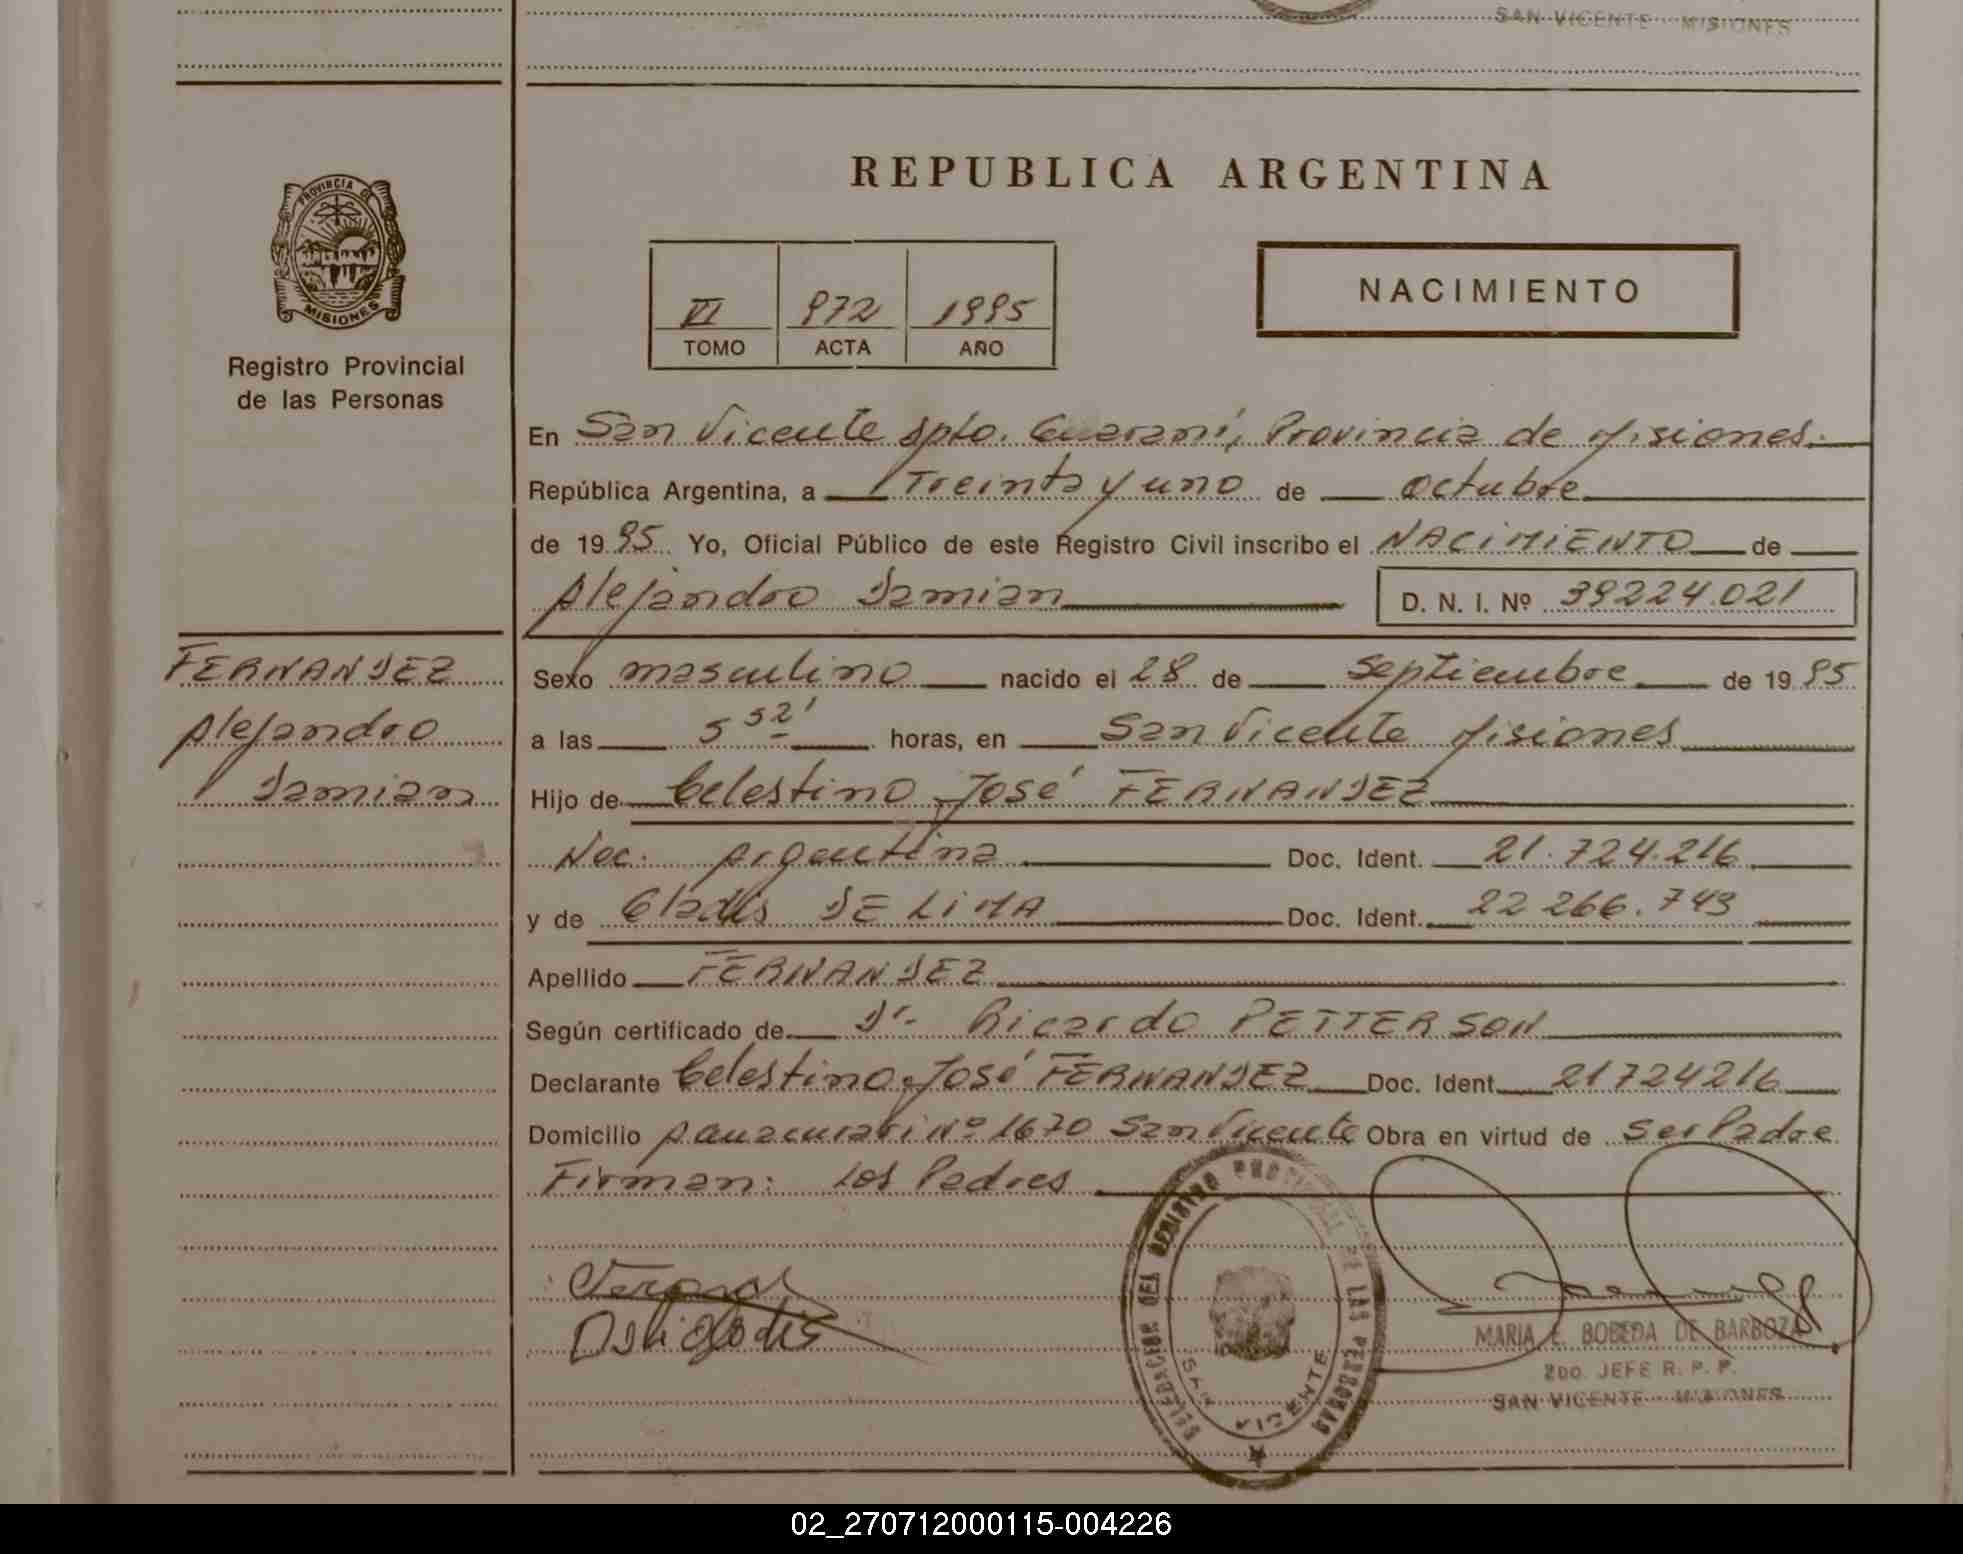 SAN VICENTE - MISIONES
PROVINCIA DE
MISIONES
Registro Provincial
de las Personas
REPUBLICA ARGENTINA
VI 972 1995
TOMO ACTA AÑO
NACIMIENTO
En San Vicente Dpto. Guaraní, Provincia de Misiones.
República Argentina, a Treinta y uno de octubre
de 1995 Yo, Oficial Público de este Registro Civil inscribo el NACIMIENTO de
Alejandro Damian D. N. I. Nº 39224.021
FERNANDEZ
Alejandro
Damian
Sexo masculino nacido el 28 de Septiembre de 1995
a las 5 32' horas, en San Vicente Misiones
Hijo de Celestino José FERNANDEZ
Nac. Argentina Doc. Ident. 21.724.216
y de Gladis DE LIMA Doc. Ident. 22 266.743
Apellido FERNANDEZ
Según certificado de Dr. Ricardo PETTERSON
Declarante Celestino José FERNANDEZ Doc. Ident. 21724216
Domicilio Nº 1670 San Vicente Obra en virtud de ser Padre
Firman: Los Padres
DEL REGISTRO PROVINCIAL DE LAS PERSONAS
SAN VICENTE
MARIA E. BOBEDA DE BARBOZA
2DO. JEFE R. P. P.
SAN VICENTE - MISIONES
02_270712000115-004226